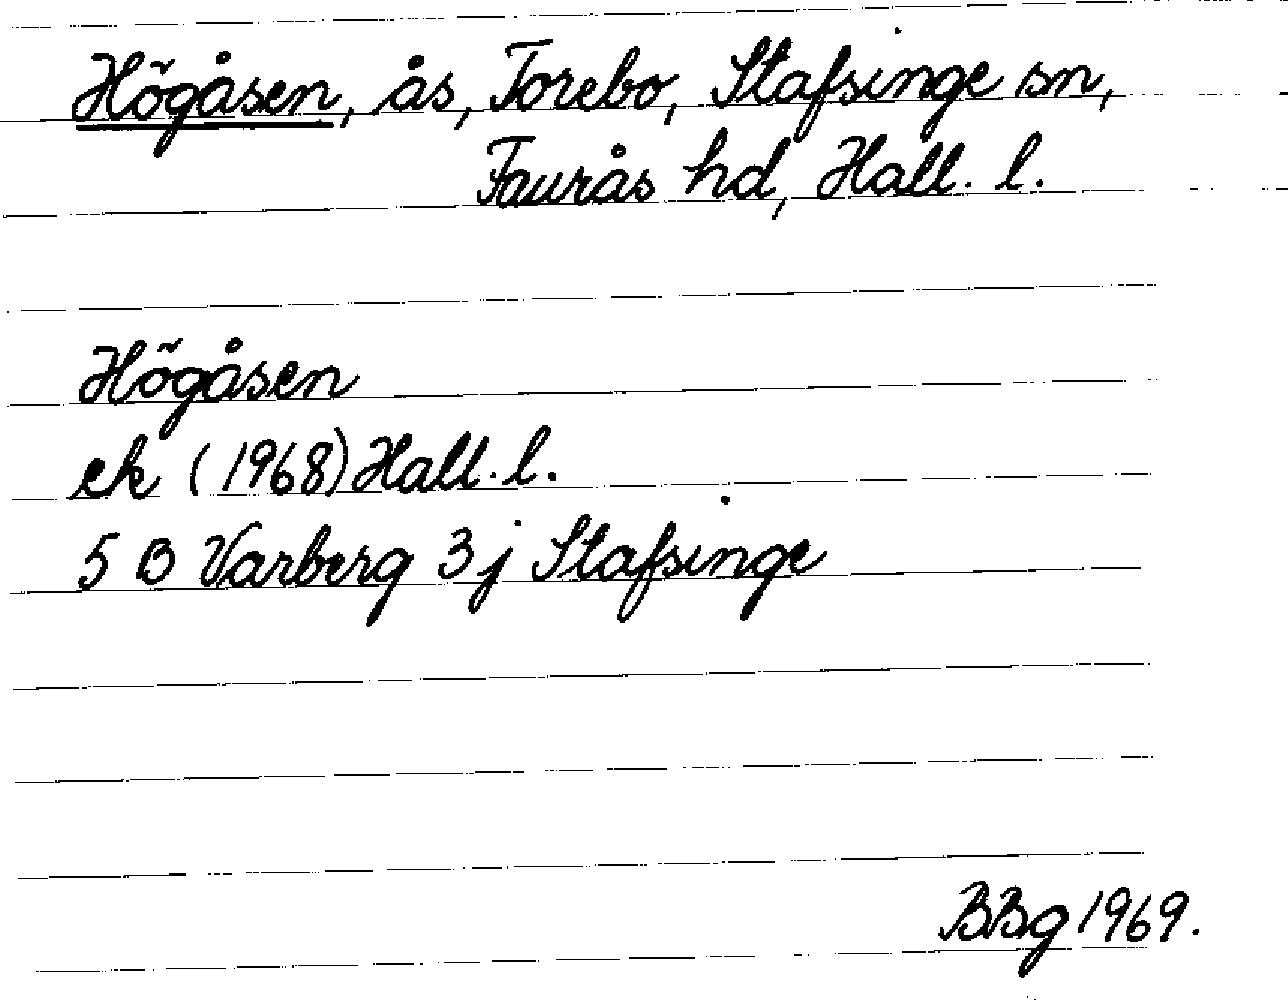 Högåsen, ås, Torebo, Stafsinge sn,
Faurås hd, Hall. l.
Högåsen
ek (1968) Hall. l.
5 B Varberg 3j Stafsinge
BBg 1969.